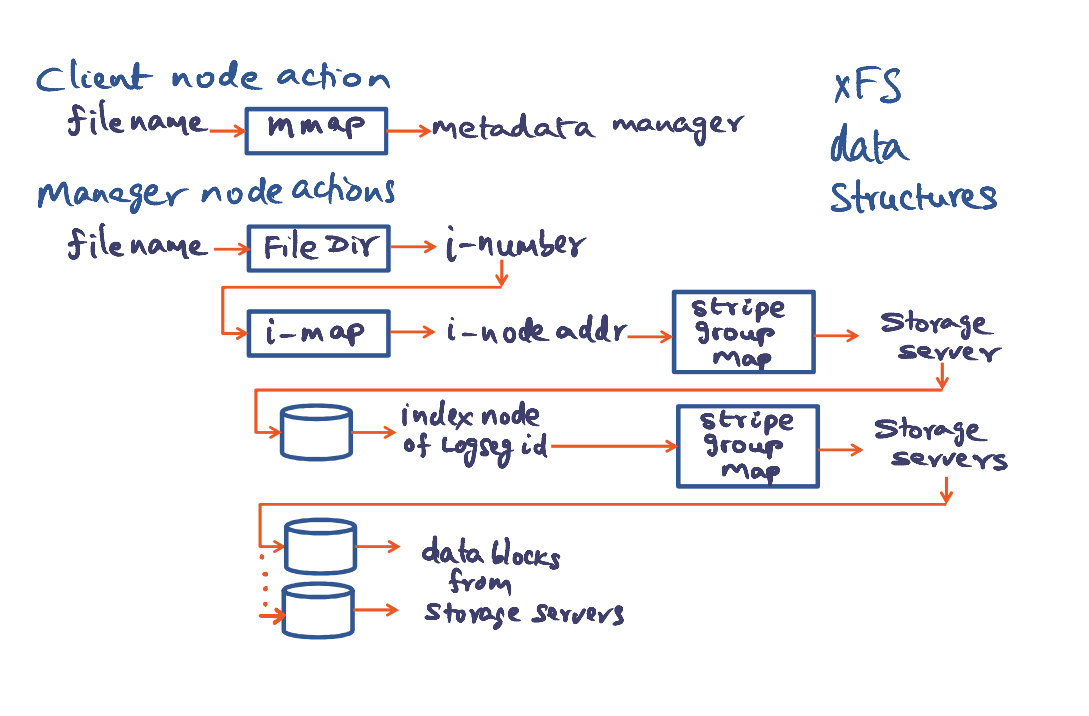 Client node action
filename mmap metadata manager
xFS
data
Structures
Manager node actions
filename File Dir i-number
i-map i-node addr
stripe
group
map
Storage
server
index node
of Logseg id
stripe
group
map
Storage
servers
data blocks
from
storage servers